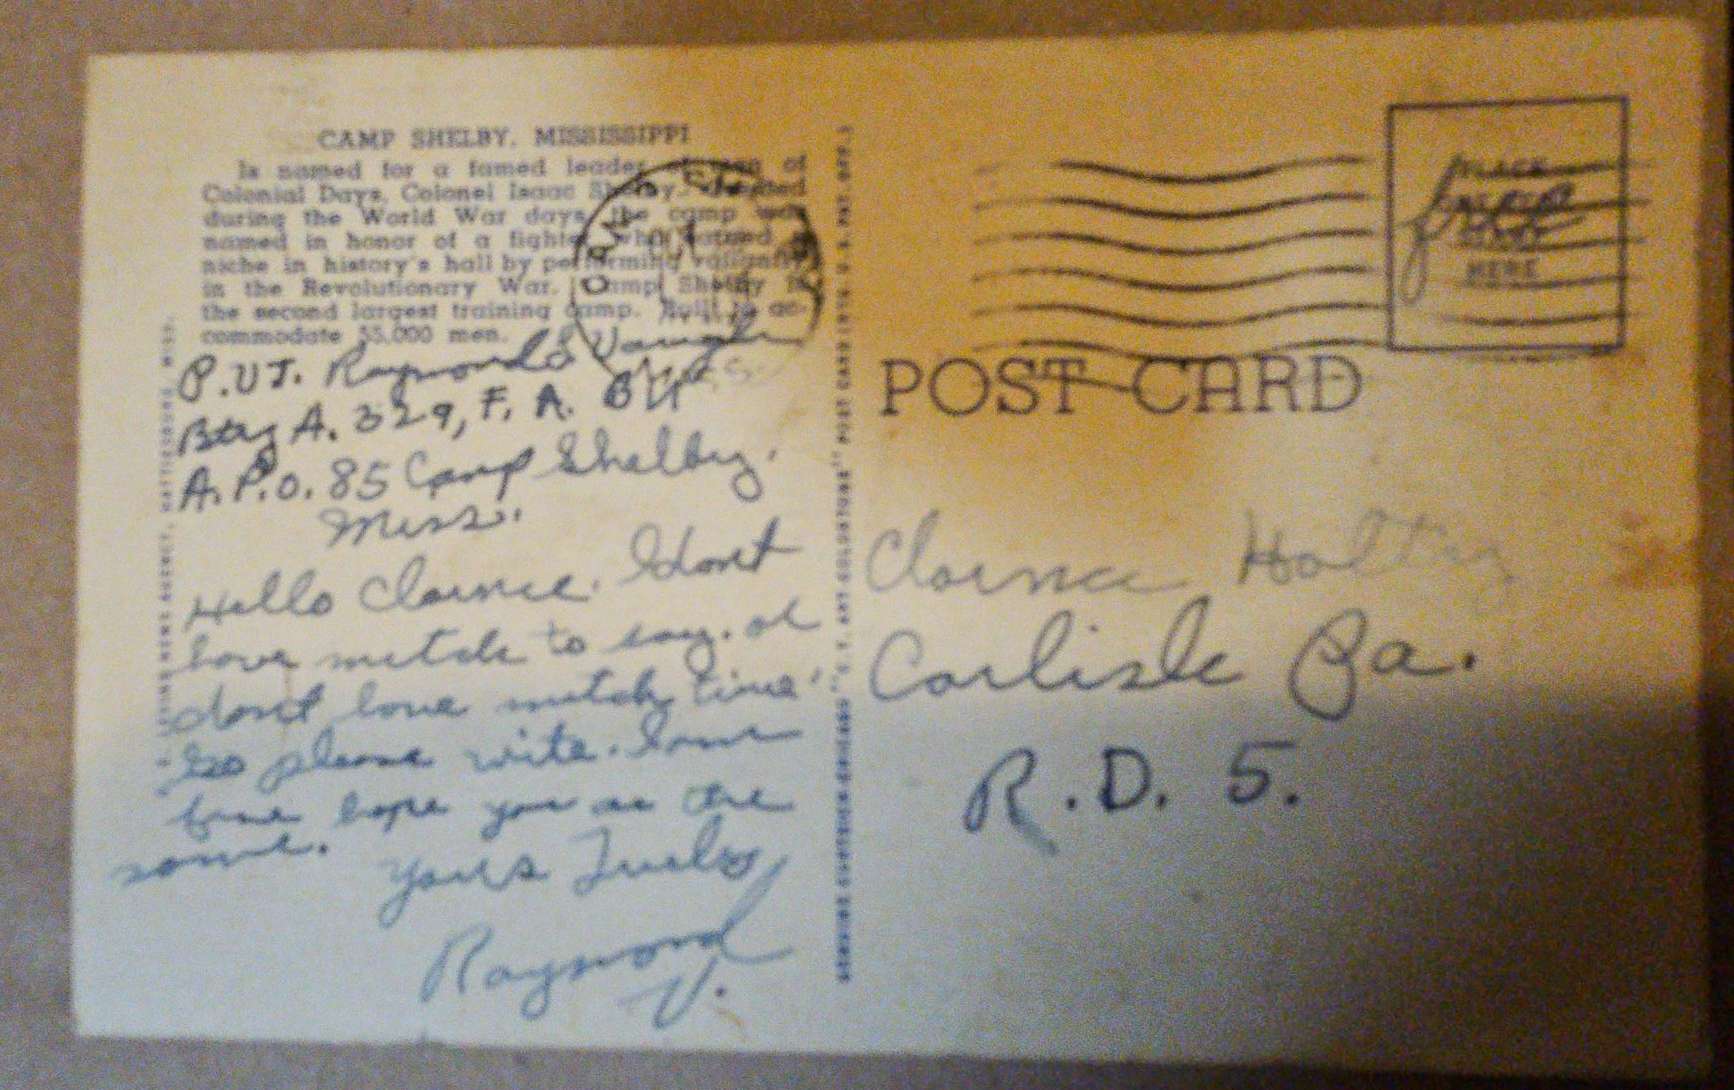 CAMP SHELBY, MISSISSIPPI
Is named for a famed leader of men of
Colonial Days, Colonel Isaac Shelby.
during the World War days, the camp was
named in honor of a fighter who earned a
niche in history's hall by performing valiantly
in the Revolutionary War. Camp Shelby is
the second largest training camp. Built to ac-
commodate 55,000 men.
P.V.T. Raymond Vaughn
Btry A. 329, F. A. BN
A.P.O. 85 Camp Shelby.
Miss.
Hello Clarence. I dont
have mutch to say. I
dont have mutch time
So please write. I am
fine hope you are the
same.
Yours Truly
Raymond
V.
NEWS AGENCY, HATTIESBURG, MISS.
POST CARD
free
PLACE
HERE
Clarence
Carlisle Pa.
R.D. 5.